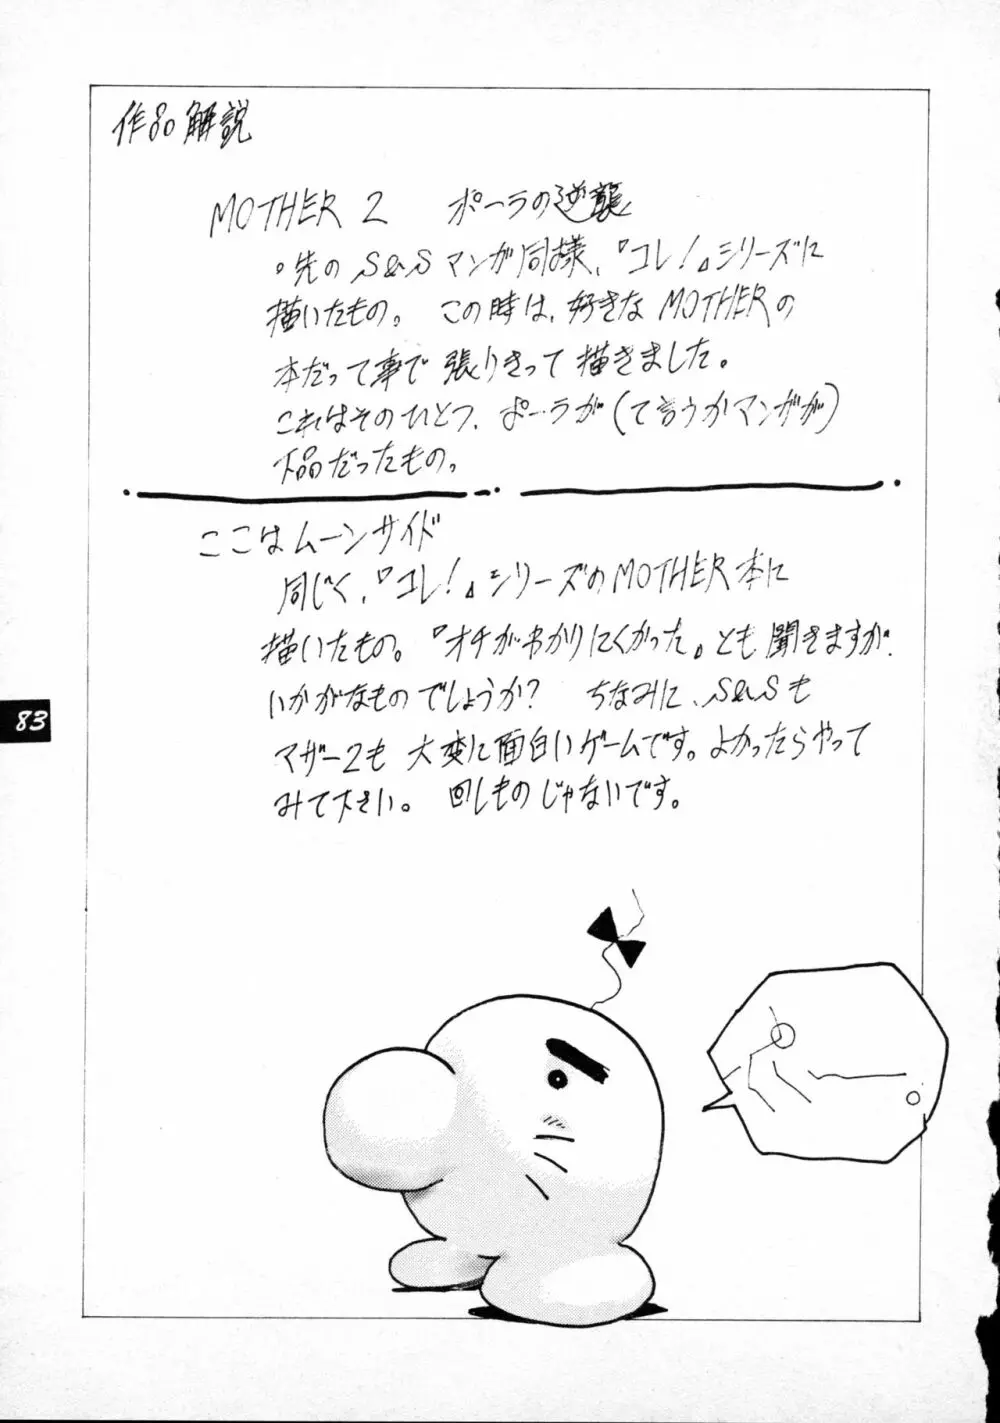 作品解説
MOTHER 2 ポーラの逆襲
○先の S&S マンガ同様、『コレ!』シリーズに
描いたもの。この時は、好きな MOTHERの
本だって事で 張りきって 描きました。
これはそのひとつ、ポーラが(て言うかマンガが)
下品だったもの。
ここはムーンサイド
同じく、『コレ!』シリーズのMOTHER本に
描いたもの。『オチがわかりにくかった』とも聞きますが、
いかがなものでしょうか? ちなみに、S&Sも
マザー2も 大変に面白いゲームです。よかったらやって
みて下さい。 回しものじゃないです。
83